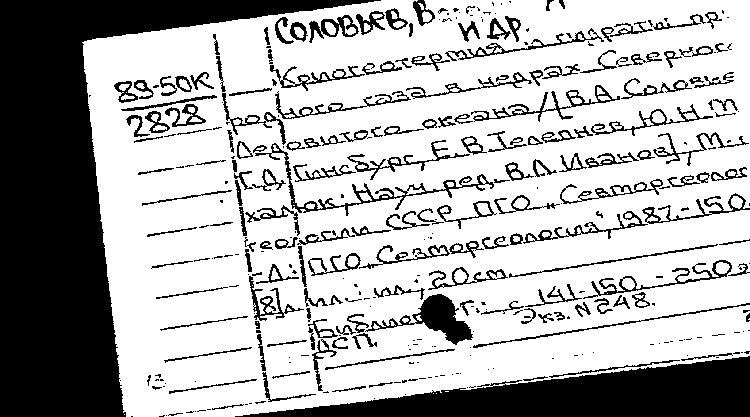 СОЛОВЬЕВ, В
И ДР.
89-50К
2828
Криогеотермия и гидраты пр
родного газа в недрах Северног
Ледовитого океана /[В.А. Соловье
Г.Д. Гинсбург, Е.В. Телепнев, Ю.Н. М
халюк; Науч. ред. В.Л. Иванов]; М.
геологии СССР, ПГО „Севморгеолог
-Л.: ПГО „Севморгеология“, 1987.-150
[8] л. ил.: ил.; 20см.
г.: с. 141-150. - 250 э
ДСП. Экз. N 248.
13